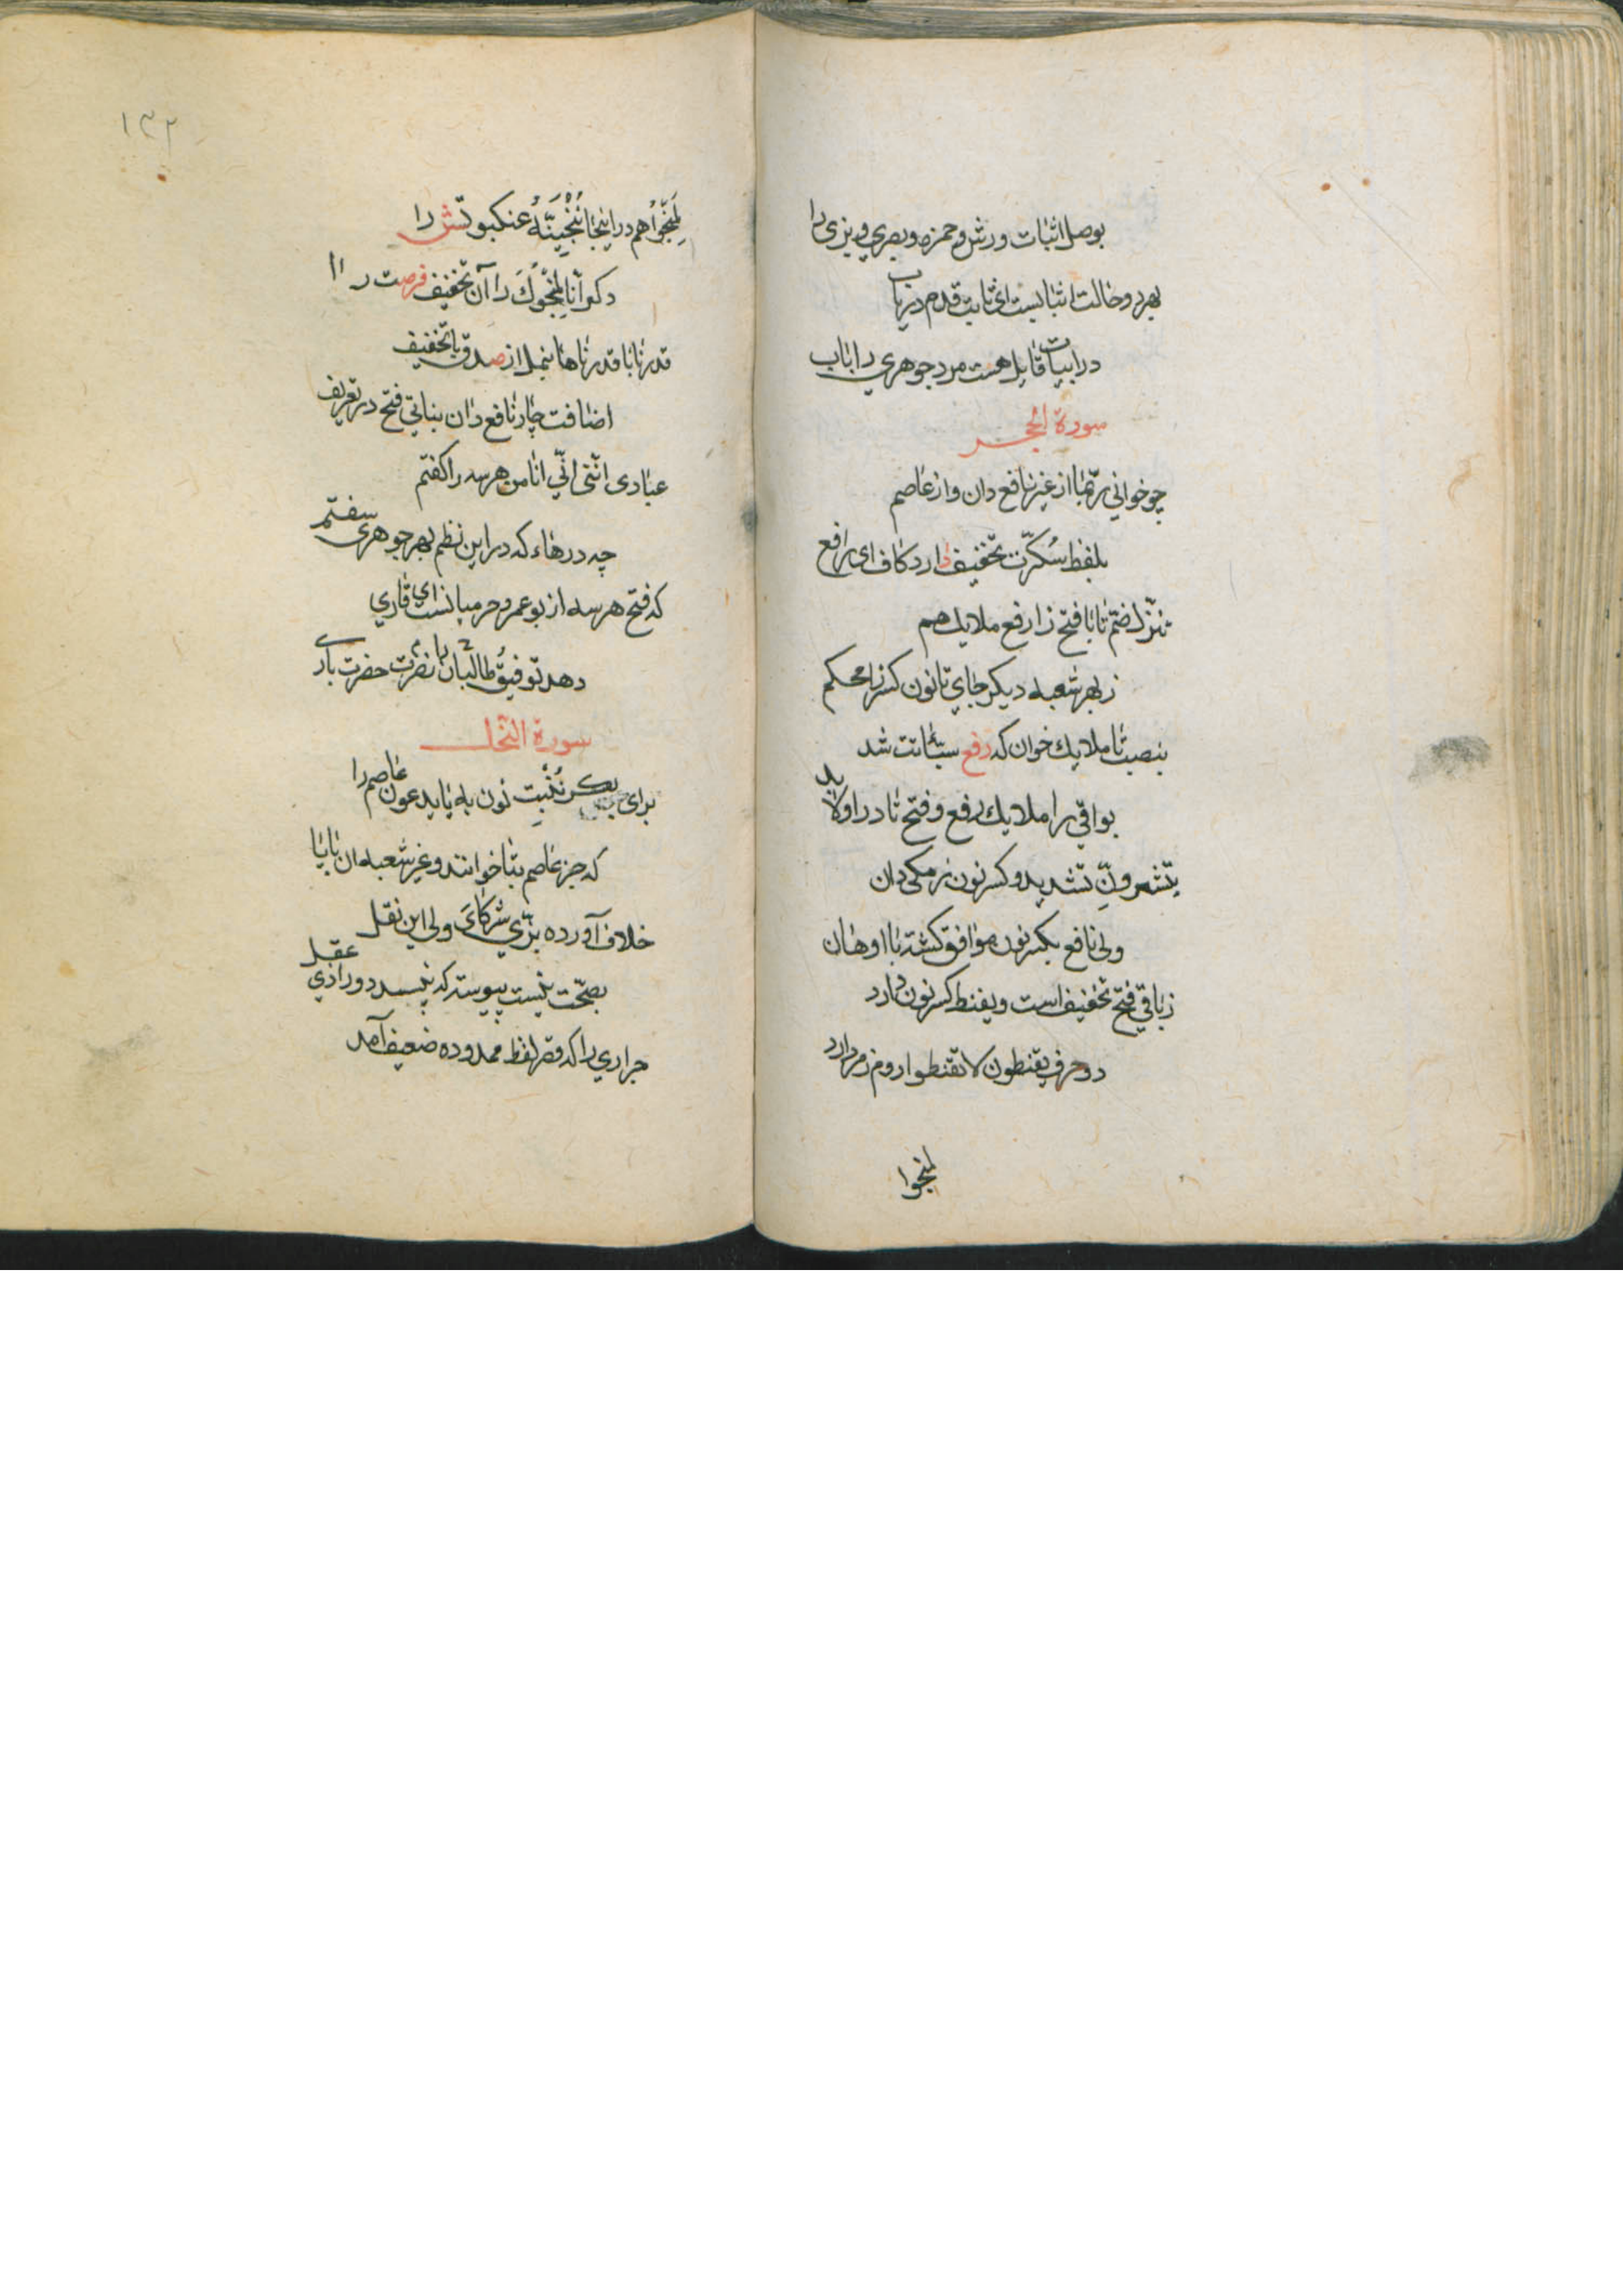 بوصل اثبات ورش و حمزه و بصری و بزی را
بهر دو حالت اثباتست ای ثابت قدم دریاب
در ابیات قابل هست مرد جوهری را باب
سورة الحجر
چو خوانی ربّما از غیر نافع دان و از عاصم
بلفظ سُکِّرَت تخفیف دارد کاف ای رافع
تنزّل ضمّ تا با فتح زا رفع ملایک هم
ز بهر شعبه دیگر جای تا نون کسر زا محکم
بنصب تا ملایک خوان که رفع سیّئاتت شد
بواقی را ملایک رفع و فتح تا در اولا بد
تبشّرونّ تشدید و کسر نون ز مکی دان
ولی نافع بکسر نون موافق کشته با اوهان
ز باقی فتح تخفیف است و یقنط کسر نون دارد
دو حرف یقنطون لا تقنطوا روم زمر دارد
لمنجوا
۱۳۲
لمنجّوا هم در اینجا ننجّینّه عنکبوتش را
دکر آنا لمنجّوک را آن تخفیف فرصت را
قدرنا با قدرناها بنمل از صدق با تخفیف
اضافت چار نافع دان بناتی فتح در تعریف
عبادی انّنی انّی انا من هر سه را کفتم
چه درهاء که در این نظم بهر جوهری سفتم
که فتح هر سه از بو عمرو حرمیانست ای قاری
دهد توفیق طالبان را نصرت حضرت باری
سورة النحل
برای بکر نُنبِت نون به یا یابد عون عاصم را
که جز عاصم بتا خوانند و غیر شعبه ان با یا
خلاف آورده بزّی شرکای ولی این نقل
بصحّت نیست پیوسته که نپسندد ورا ذی عقل
جراری را که قصر لفظ ممدوده ضعیف آمد